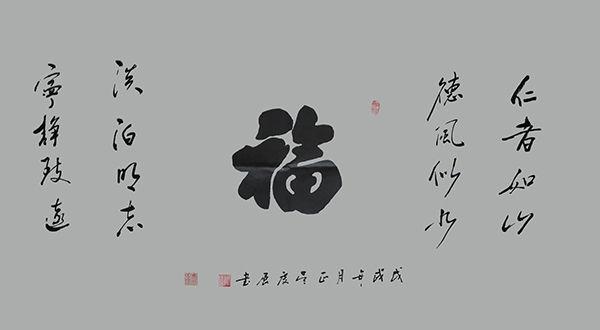 仁者如山
德風似水
福
淡泊明志
寧靜致遠
戊戌年月正
書